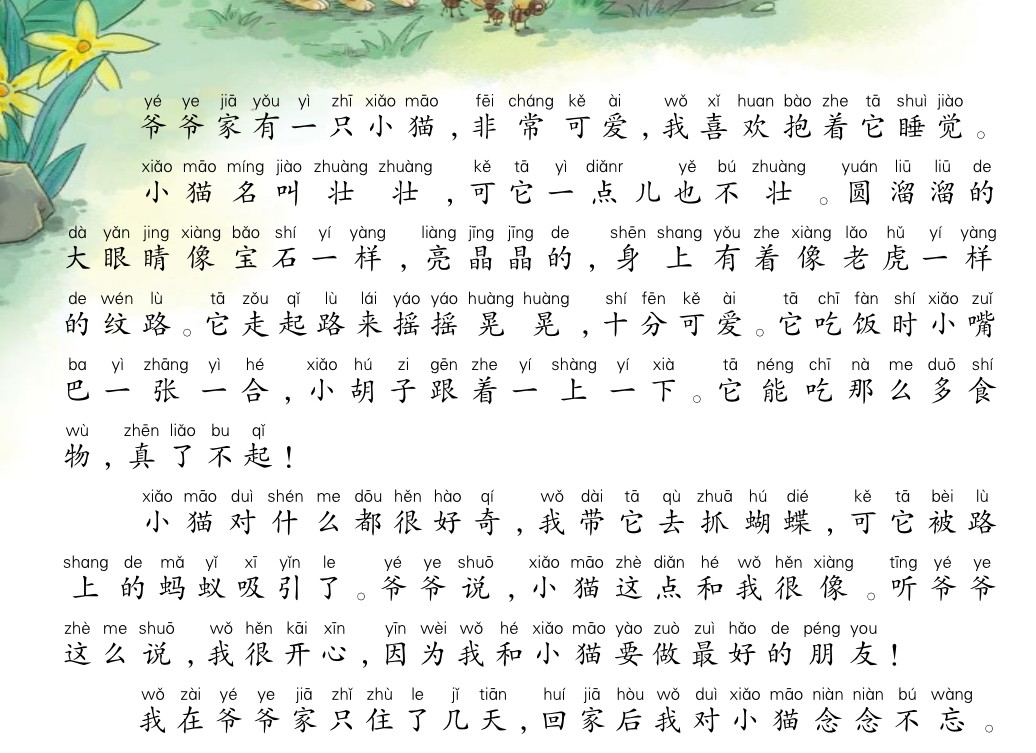 yé ye jiā yǒu yì zhī xiǎo māo fēi cháng kě ài wǒ xǐ huan bào zhe tā shuì jiào
爷爷家有一只小猫,非常可爱,我喜欢抱着它睡觉。
xiǎo māo míng jiào zhuàng zhuàng kě tā yì diǎnr yě bú zhuàng yuán liū liū de
小猫名叫壮壮,可它一点儿也不壮。圆溜溜的
dà yǎn jing xiàng bǎo shí yí yàng liàng jīng jīng de shēn shang yǒu zhe xiàng lǎo hǔ yí yàng
大眼睛像宝石一样,亮晶晶的,身上有着像老虎一样
de wén lù tā zǒu qǐ lù lái yáo yáo huàng huàng shí fēn kě ài tā chī fàn shí xiǎo zuǐ
的纹路。它走起路来摇摇晃晃,十分可爱。它吃饭时小嘴
ba yì zhāng yì hé xiǎo hú zi gēn zhe yí shàng yí xià tā néng chī nà me duō shí
巴一张一合,小胡子跟着一上一下。它能吃那么多食
wù zhēn liǎo bu qǐ
物,真了不起!
xiǎo māo duì shén me dōu hěn hào qí wǒ dài tā qù zhuā hú dié kě tā bèi lù
小猫对什么都很好奇,我带它去抓蝴蝶,可它被路
shang de mǎ yǐ xī yǐn le yé ye shuō xiǎo māo zhè diǎn hé wǒ hěn xiàng tīng yé ye
上的蚂蚁吸引了。爷爷说,小猫这点和我很像。听爷爷
zhè me shuō wǒ hěn kāi xīn yīn wèi wǒ hé xiǎo māo yào zuò zuì hǎo de péng you
这么说,我很开心,因为我和小猫要做最好的朋友!
wǒ zài yé ye jiā zhǐ zhù le jǐ tiān huí jiā hòu wǒ duì xiǎo māo niàn niàn bú wàng
我在爷爷家只住了几天,回家后我对小猫念念不忘。